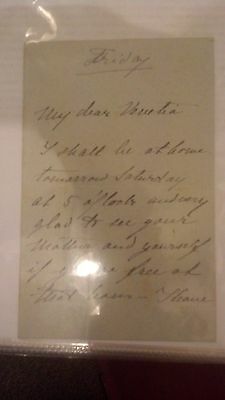 Friday
My dear Venetia
I shall be at home
tomorrow Saturday
at 5 o'clock and very
glad to see your
Mother and yourself
if you are free at
that hour — I have